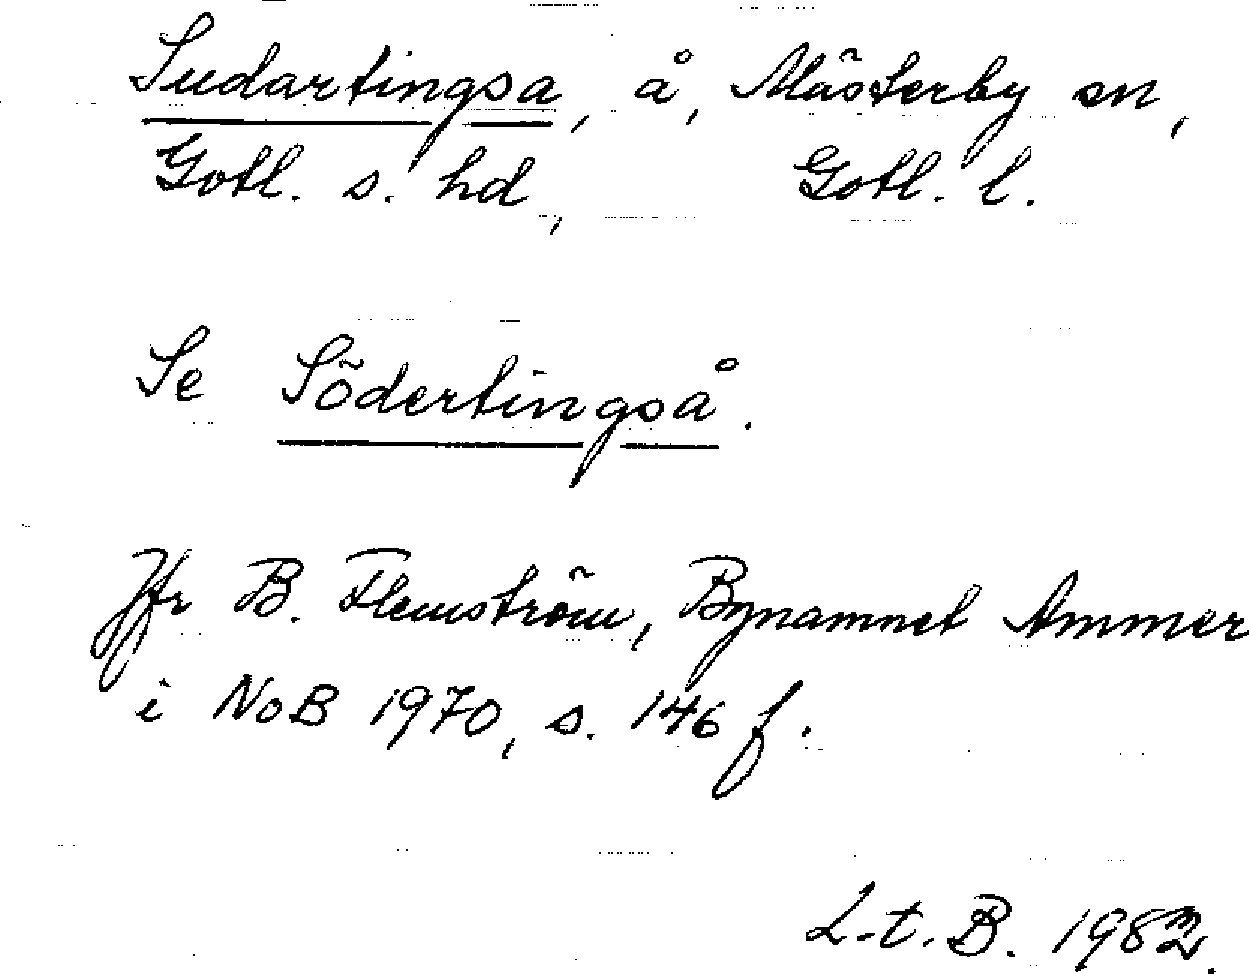 Sudartingsa, å, Mästerby sn,
Gotl. s. hd, Gotl. l.
Se Södertingså.
Jfr B. Flemström, Bynamnet Ammer
i NoB 1970, s. 146 f.
L-t. B. 1982.